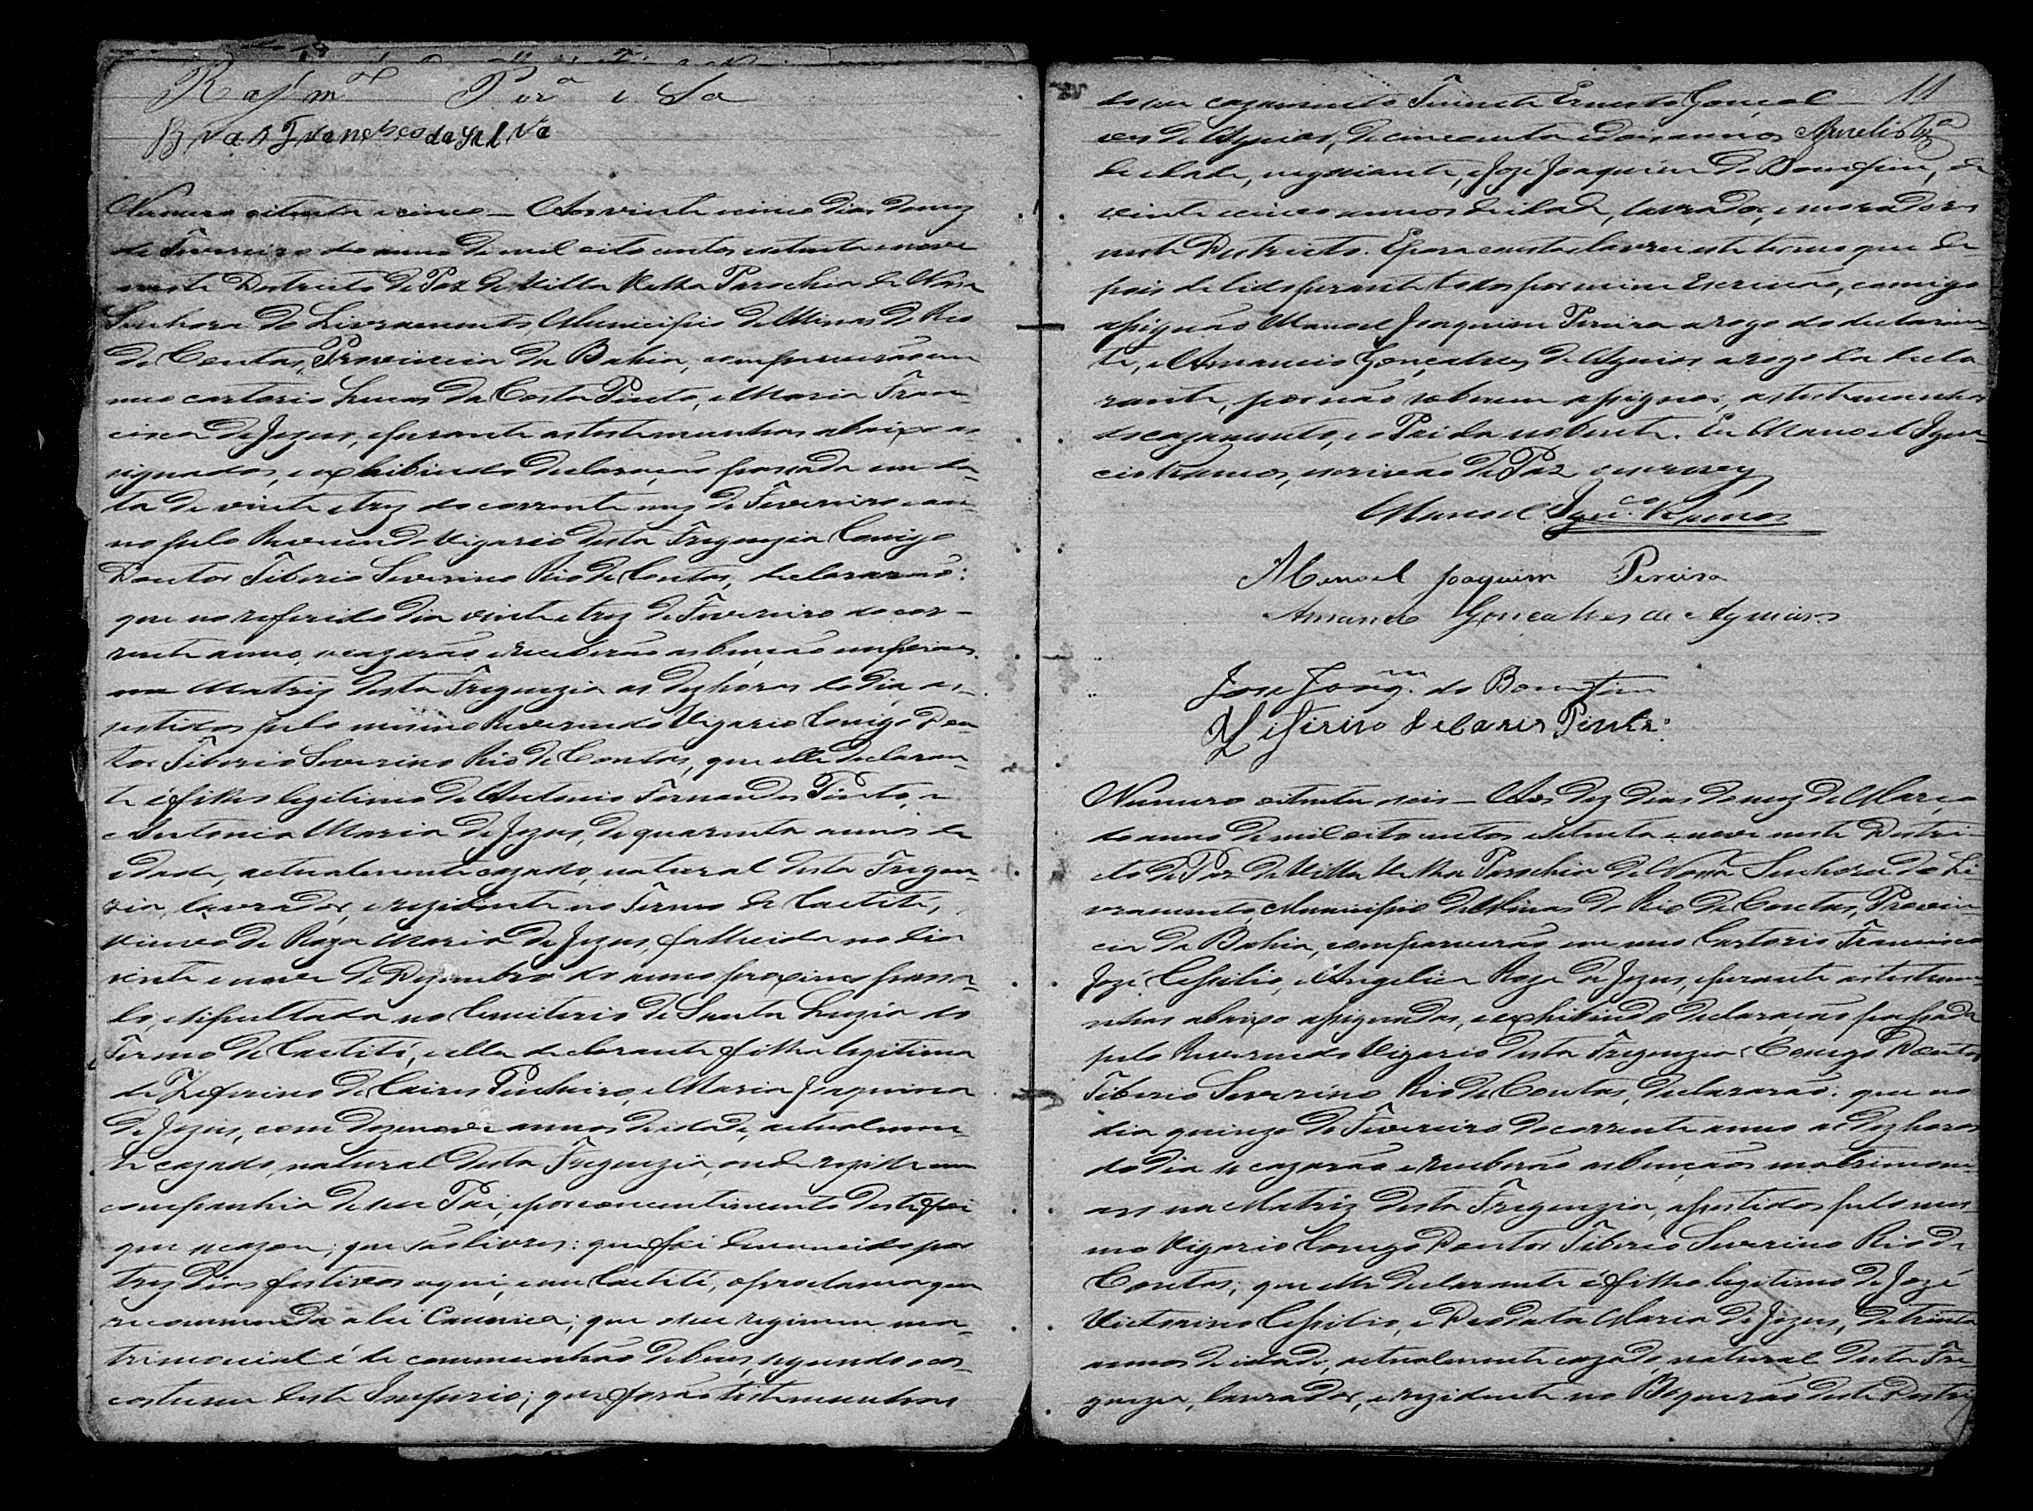 Raym.do Per.a e Sa
Bras Francisco da Silva
Numero oitenta e cinco – Aos vinte e cinco dias do mez
de Fevereiro do anno de mil oito centos e setenta e nove
neste Destricto de Paz de Villa Velha Parochia de Nossa
Senhora do Livramento Municipio de Minas do Rio
de Contas, Provincia da Bahia, comparecerão em
meo cartorio Lucas da Costa Pinto, e Maria Fran-
cisca de Jezus, e perante as testemunhas abaixo as-
signadas, e exhibindo declaração passada em da-
ta de vinte e trez do corrente mez de Fevereiro e an-
no pelo Reverendo Vigario desta Freguezia Conigo
Doutor Tiberio Severino Rio de Contas, declararão:
que no referido dia vinte e trez de Fevereiro do cor-
rente anno, se cazarão e receberão as bençãos nupciaes
na Matriz desta Freguezia as dez horas do dia, as-
sestidos pelo mesmo Reverendo Vigario Conigo Dou-
tor Tiberio Severino Rio de Contas, que elle declaran-
te é filho legitimo de Antonio Fernandes Pinto, e
Antonia Maria de Jezus, de quarenta annos de
edade, actualmente cazado, natural desta Fregue-
zia, lavrador, e rezidente no Termo de Caetité,
viuvo de Roza Maria de Jezus, fallecida no dia
vinte e nove de Dezembro do anno proximo passa-
do, e sepultada no Cemiterio de Santa Luzia do
Termo de Caetité, e ella declarante filha legitima
de Zeferino de Caires Pinheiro, e Maria Joaquina
de Jezus, com dezenove annos de idade, actualmen-
te cazada, natural desta Freguezia, onde rezide em
companhia de seu Pai, e por consentimento deste foi
que se cazou; que são livres: que foi denunciado por
trez dias festivos aqui, e em Caetité, o proclama que
recommenda a lei Canonica; que o seu regimen ma-
trimonial é de communhão de bens, segundo o cos-
costume deste Imperio; que forão testemunhas
11
do seu cazamento Tenente Ernesto Gonçal-
ves de Aguiar, de cincoenta e dois annos
de edade, negociante, e Jozé Joaquim do Bomfim, de
vinte e cinco annos de idade, lavrador, e moradores
neste Destricto. E para constar lavrei este termo que de-
pois de lido perante todos por mim Escrivão, comigo
assignão Manoel Joaquim Pereira a rogo do declaran-
te, e Amancio Gonçalves de Aguiar a rogo da decla
rante, por não saberem assignar, as testemunhas
do cazamento, e o Pai da nubente. Eu Manoel Igna-
cio Ramos, escrivão de Paz o escrevy
Manoel Ign.co Ramos
Manoel Joaquim Pereira
Amancio Gonçalves de Aguiar
Jose Joaq.m do Bomfim
Zeferino de Caires
Numero oitenta e seis – Aos dez dias do mez de Março
do anno de mil oito centos e setenta e nove neste Destri-
cto de Paz de Villa Velha Parochia de Nossa Senhora do Li-
vramento Municipio de Minas do Rio de Contas, Provin-
cia da Bahia, comparecerão em meo Cartorio Francisco
Jozé Cessilio, e Angelica Roza de Jezus, e perante as testemu-
nhas abaixo assignadas, e exhibindo declaração passada
pelo Reverendo Vigario desta Freguezia Conigo Doutor
Tiberio Severino Rio de Contas, declararão: que no
dia quinze de Fevereiro do corrente anno as dez horas
do dia se cazarão e receberão as bençãos matrimoni-
aes na Matriz desta Freguezia, assestidos pelo mes-
mo Vigario Conigo Doutor Tiberio Severino Rio de
Contas; que elle declarante é filho legitimo de Jozé
Victorino Cessilio, e Deodata Maria de Jezus, de trinta
annos de idade, actualmente cazado natural desta Fre-
guezia, lavrador, e rezidente no deste Destri-